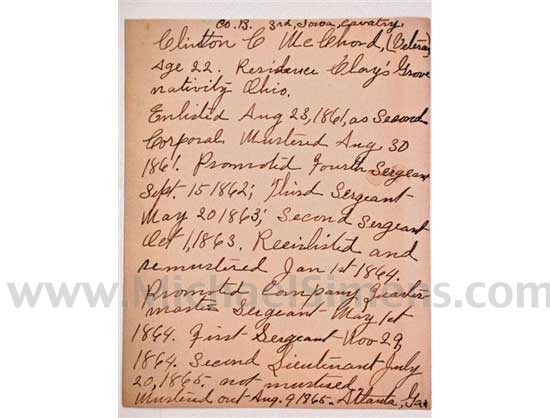 Co. B. 3rd, Iowa, Cavatry,
Clinton C McChord, (Veteran)
Age 22. Residence Clay's Grove
nativity Ohio.
Enlisted Aug 23, 1861, as Second
Corporal Mustered Aug 30
1861. Promoted Fourth Sergeant
Sept. 15 1862; Third Sergeant
May 20 1863; Second Sergeant
Oct 1, 1863. Reenlisted and
remustered Jan 1st 1864.
www.MichaelSimens.com
promoted Company Quarter
master Sergeant May 1st
1864. First Sergeant Nov 29,
1864. Second Lieutenant July
20, 1865. not mustered
Mustered out Aug. 9 1865. Atlanta, Ga